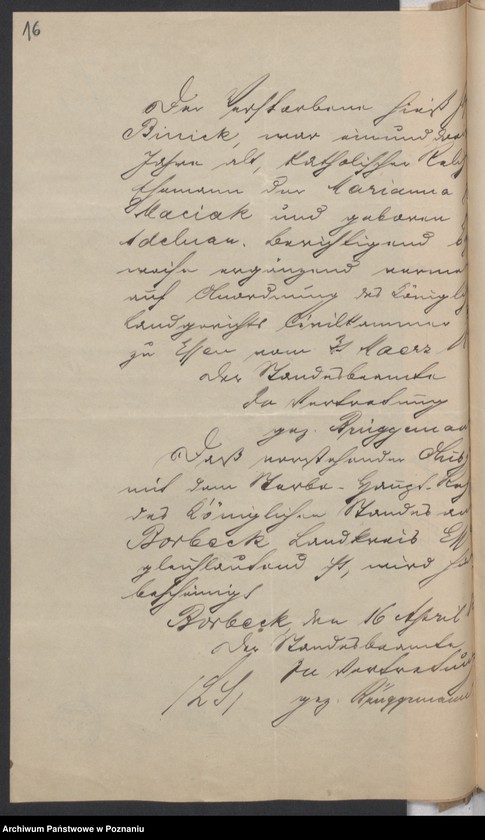 16
Der Verstorbene hieß
Binick, war einund
Jahre alt, katholischer
Ehemann der Marianna
Maciak und geboren
Adelnau. Berichtigend
weise ergänzend verme
auf Anordnung des Königl
Landgerichts Civilkammer
zu Essen vom Maerz
Der Standesbeamte
In Vertretung
gez. Brüggeman
Daß vorstehender Aus
mit dem Sterbe-Haupt-Reg
des Königlichen Standesam
Borbeck Landkreis Ess
gleichlautend ist, wird hi
bescheinigt
Borbeck, den 16 April
Der Standesbeamte
In Vertretung
/LS/ gez. Brüggemann
Archiwum Państwowe w Poznaniu